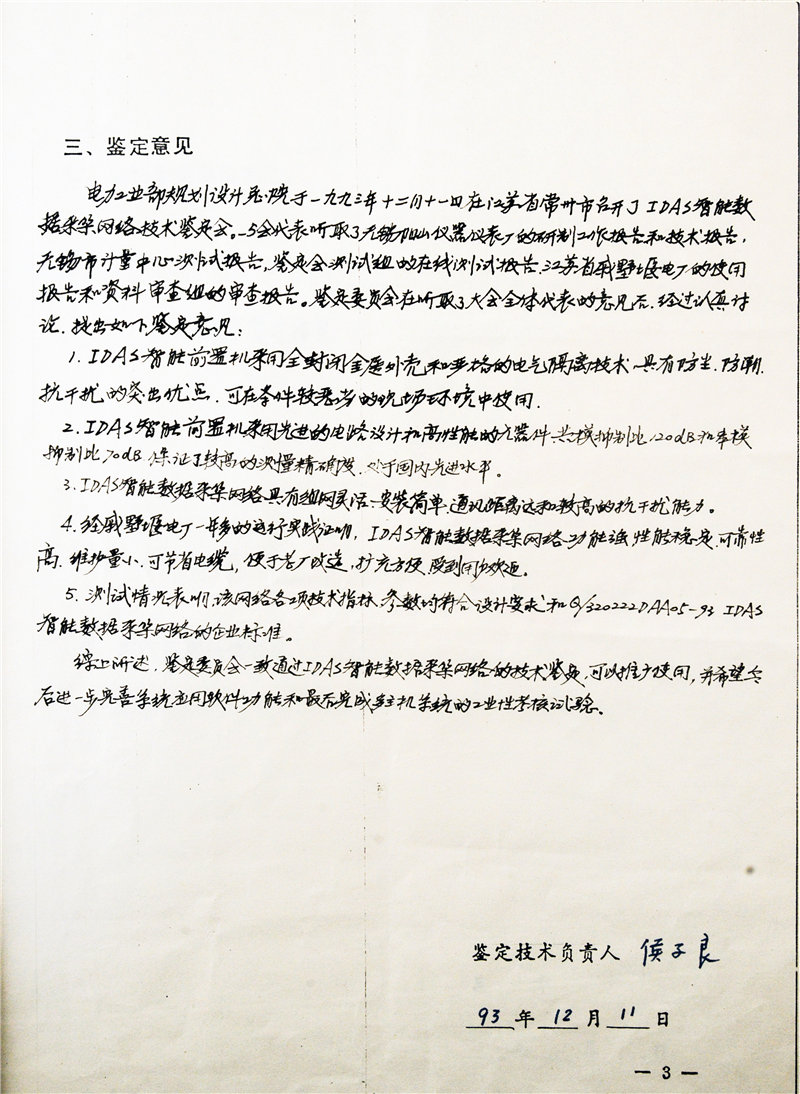 三、鉴定意见
电力工业部规划设计总院于一九九三年十二月十一日在江苏省常州市召开了IDAS智能数
据采集网络技术鉴定会。与会代表听取了无锡仪器仪表厂的研制工作报告和技术报告,
无锡市计量中心测试报告,鉴定会测试组的在线测试报告,江苏省戚墅堰电厂的使用
报告和资料审查组的审查报告。鉴定委员会在听取了大会全体代表的意见后,经过认真讨
论,提出如下鉴定意见:
1. IDAS智能前置机采用全封闭金属外壳和严格的电气隔离技术,具有防尘、防潮、
抗干扰的突出优点,可在条件较恶劣的现场环境中使用.
2. IDAS智能前置机采用先进的电路设计和高性能的元器件,共模抑制比120dB和串模
抑制比70dB,保证了较高的测量精确度,处于国内先进水平。
3. IDAS智能数据采集网络具有组网灵活、安装简单、通讯距离远和较高的抗干扰能力。
4. 经戚墅堰电厂一年多的运行实践证明,IDAS智能数据采集网络功能强、性能稳定、可靠性
高、维护量小、可节省电缆,便于老厂改造,扩充方便,受到用户欢迎。
5. 测试情况表明,该网络各项技术指标、参数均符合设计要求和Q/320222DAA05-93 IDAS
智能数据采集网络的企业标准。
综上所述,鉴定委员会一致通过IDAS智能数据采集网络的技术鉴定,可以推广使用,并希望今
后进一步完善系统应用软件功能和最后完成主机系统的工业性考核试验。
鉴定技术负责人 侯子良
93 年 12 月 11 日
— 3 —